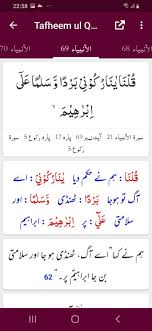 22:58
Tafheem ul Q...
الأنبياء 68
الأنبياء 69
الأنبياء 70
قُلْنَا يٰنَارُ كُوْنِيْ بَرْدًا وَّسَلٰمًا عَلٰٓى
اِبْرٰهِيْمَ
سورة الأنبياء 21 آیت نمبر 69 پارہ 17 رکوع 5 سورة
رکوع 5
قُلْنَا : ہم نے حکم دیا يٰنَارُكُوْنِيْ : اے
آگ تو ہوجا بَرْدًا : ٹھنڈی وَّسَلٰمًا : اور
سلامتی عَلٰٓى : پر اِبْرٰهِيْمَ : ابراہیم
ہم نے کہا ”اے آگ، ٹھنڈی ہو جا اور سلامتی
بن جا ابراہیمؑ پر۔“ 62